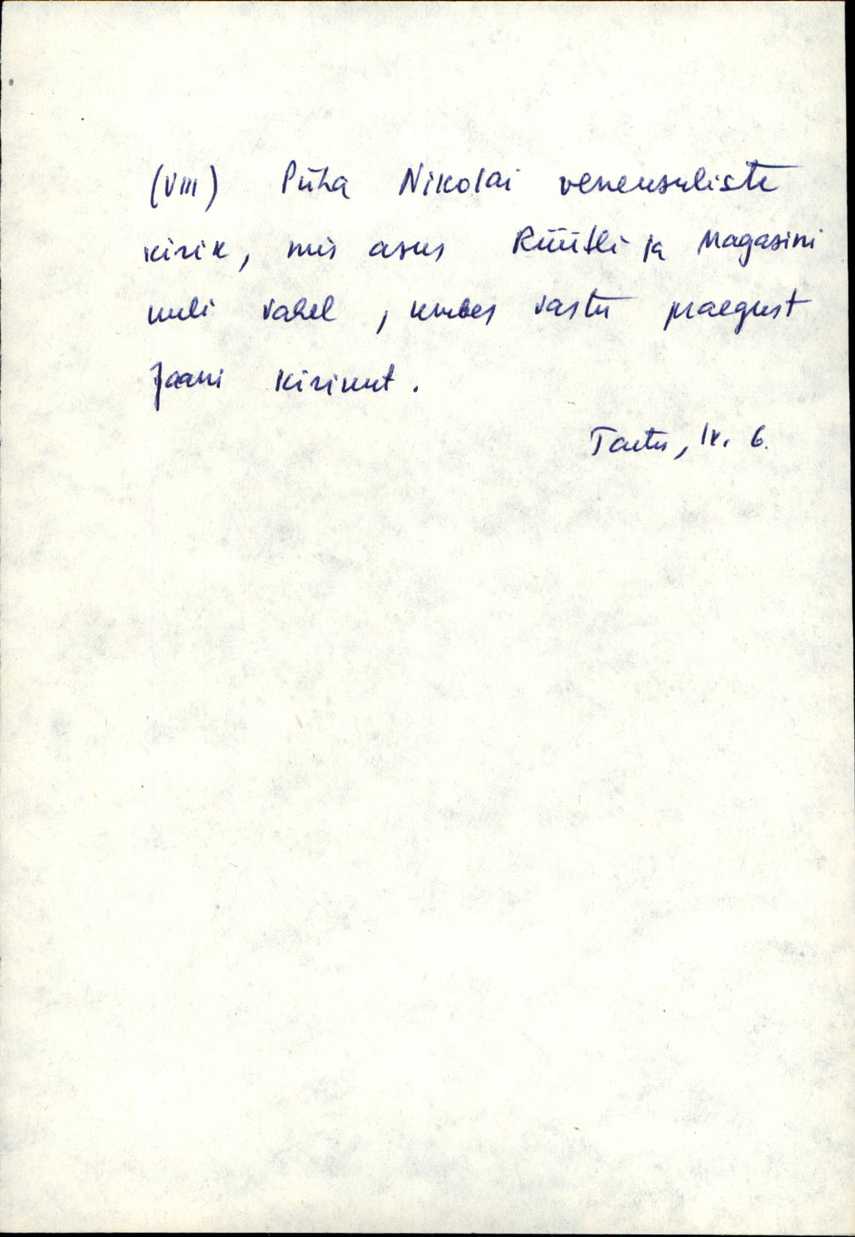 (VIII) Püha Nikolai veneusuliste
kirik, mis asus Rüütli ja Magasini
uuli vahel, umbes vastu praegust
Jaani kirikut.
Tartu, IV. 6.